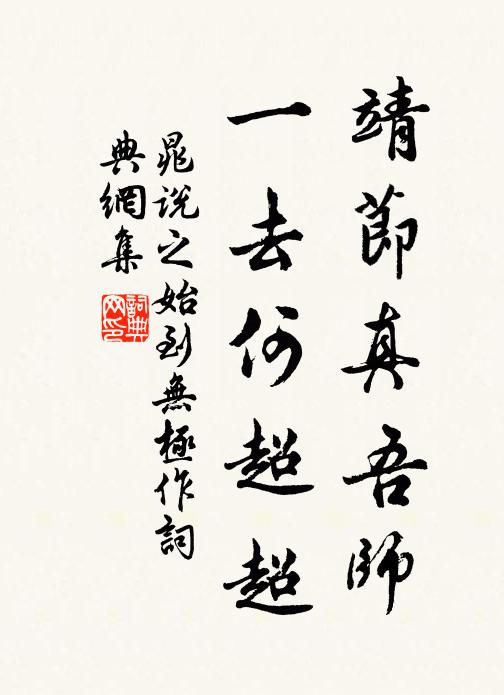 靖節真吾師
一去何超超
晁說之始到無極作詞
典網集
詞典網印